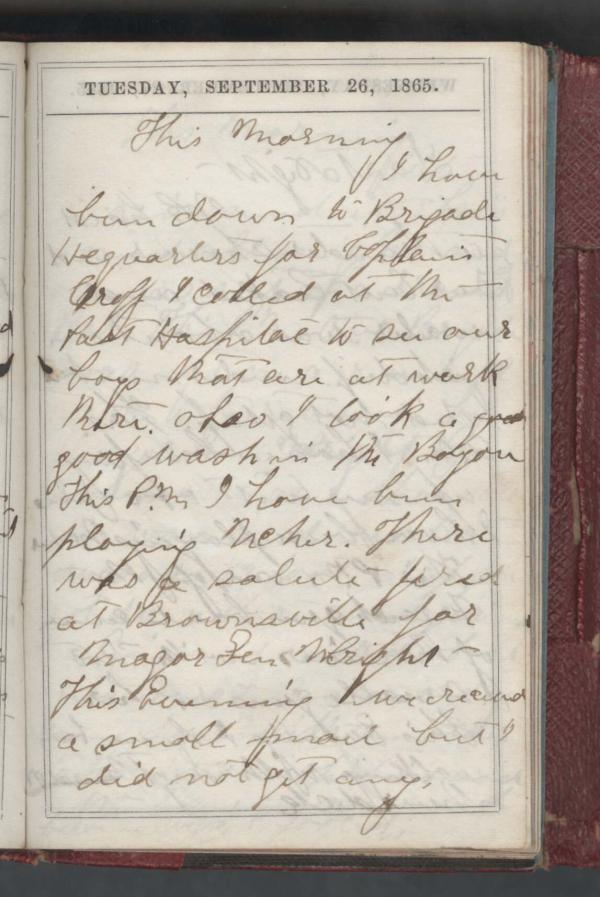 TUESDAY, SEPTEMBER 26, 1865.
This Morning
I have
been down to Brigade
Hequarters for Captain
I called at the
Post Hospital to see our
boys that are at work
there. also I took a good
good wash in the Bayou
This P.M. I have been
playing Ucher. There
was a salute fired
at Brownsville for
Magor Gen Wright
This Evening we received
a small mail but I
did not get any.